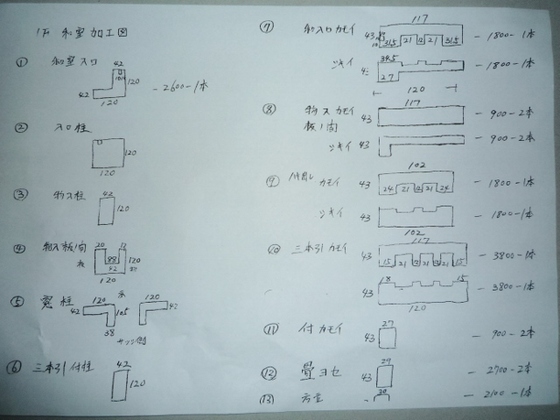 1F 和室加工図
① 和室入口
42
120
42
120
- 2600-1本
② 入口柱
120
120
③ 物入柱
42
120
④ 物入板ノ間
20 12
88
42
120
120
⑤ 窓柱
120
42
105
38
120
42
⑥ 三本引付柱
42
120
⑦ 物入口カモイ
117
43
31.5 21 12 21 31.5
- 1800-1本
シキイ
38.5
27
120
- 1800-1本
⑧ 物入カモイ
板ノ間
117
43
- 900-2本
シキイ
- 900-2本
⑨ 片引カモイ
102
43
24 21 12 21 24
- 1800-1本
シキイ
43
102
- 1800-1本
⑩ 三本引カモイ
117
43
15 21 12 21 12 21 15
- 3800-1本
18 15
43
120
- 3800-1本
⑪ 付カモイ
27
43
- 900-2本
⑫ 畳ヨセ
27
43
- 2700-2本
⑬
20
- 2100-1本